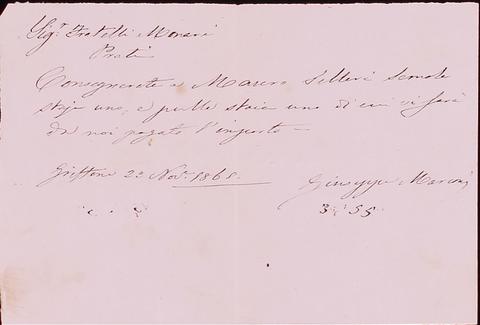 Sig.r Fratelli Monari
Prati
Consegnerete a Marco Selleri Semole
staja uno, e pulle staia uno di cui vi sarà
da noi pagato l'importo —
Griffone 23 Nov. 1868.
Giuseppe Marconi
3:55